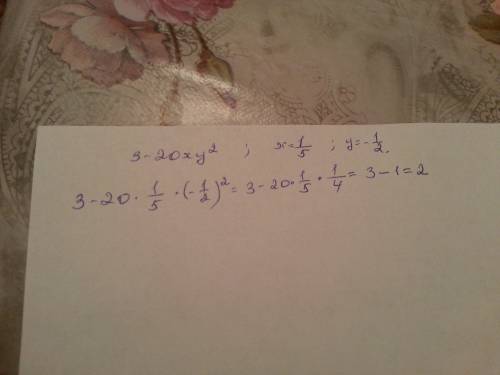 3-20xy² ; x=1/5 ; y=-1/2.
3-20·1/5·(-1/2)²=3-20·1/5·1/4=3-1=2